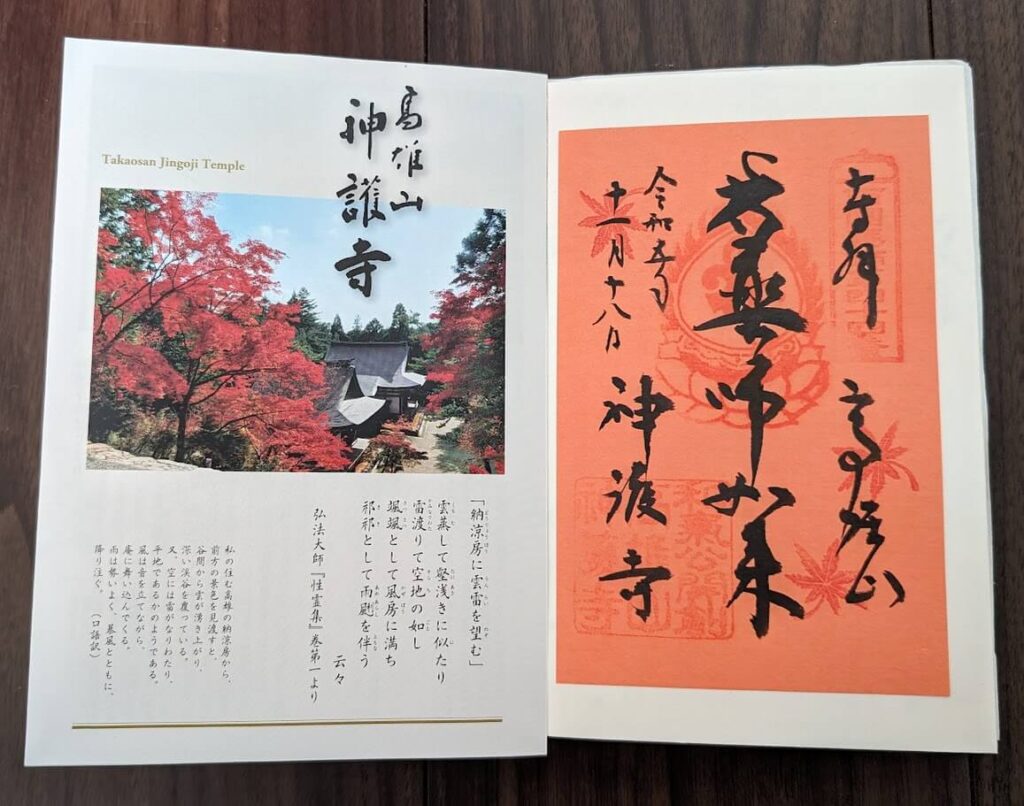 高雄山
神護寺
Takaosan Jingoji Temple
「納涼房に雲雷を望む」
雲蒸して壑浅きに似たり
雷渡りて空地の如し
颯颯として風房に満ち
祁祁として雨颸を伴う
云々
弘法大師『性霊集』巻第一より
私の住む高雄の納涼房から、
前方の景色を見渡すと、
谷間から雲が湧き上がり、
深い渓谷を覆っている。
又、空には雷がなりわたり、
平地であるかのようである。
風は音を立てながら、
庵に舞い込んでくる。
雨は勢いよく、暴風とともに、
降り注ぐ。　（口語訳）
奉拝　高雄山
薬師如来
令和五年
十一月十八日
神護寺